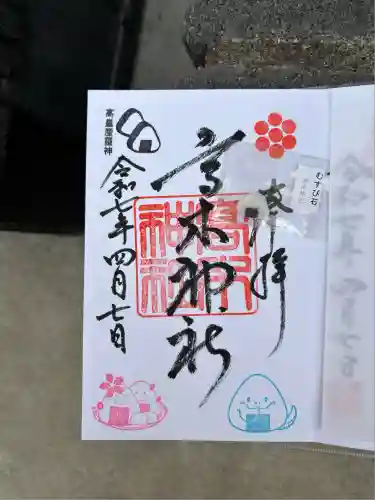 奉拝
むすび石
高木神社
高木
神社
高皇産靈神
令和七年四月七日